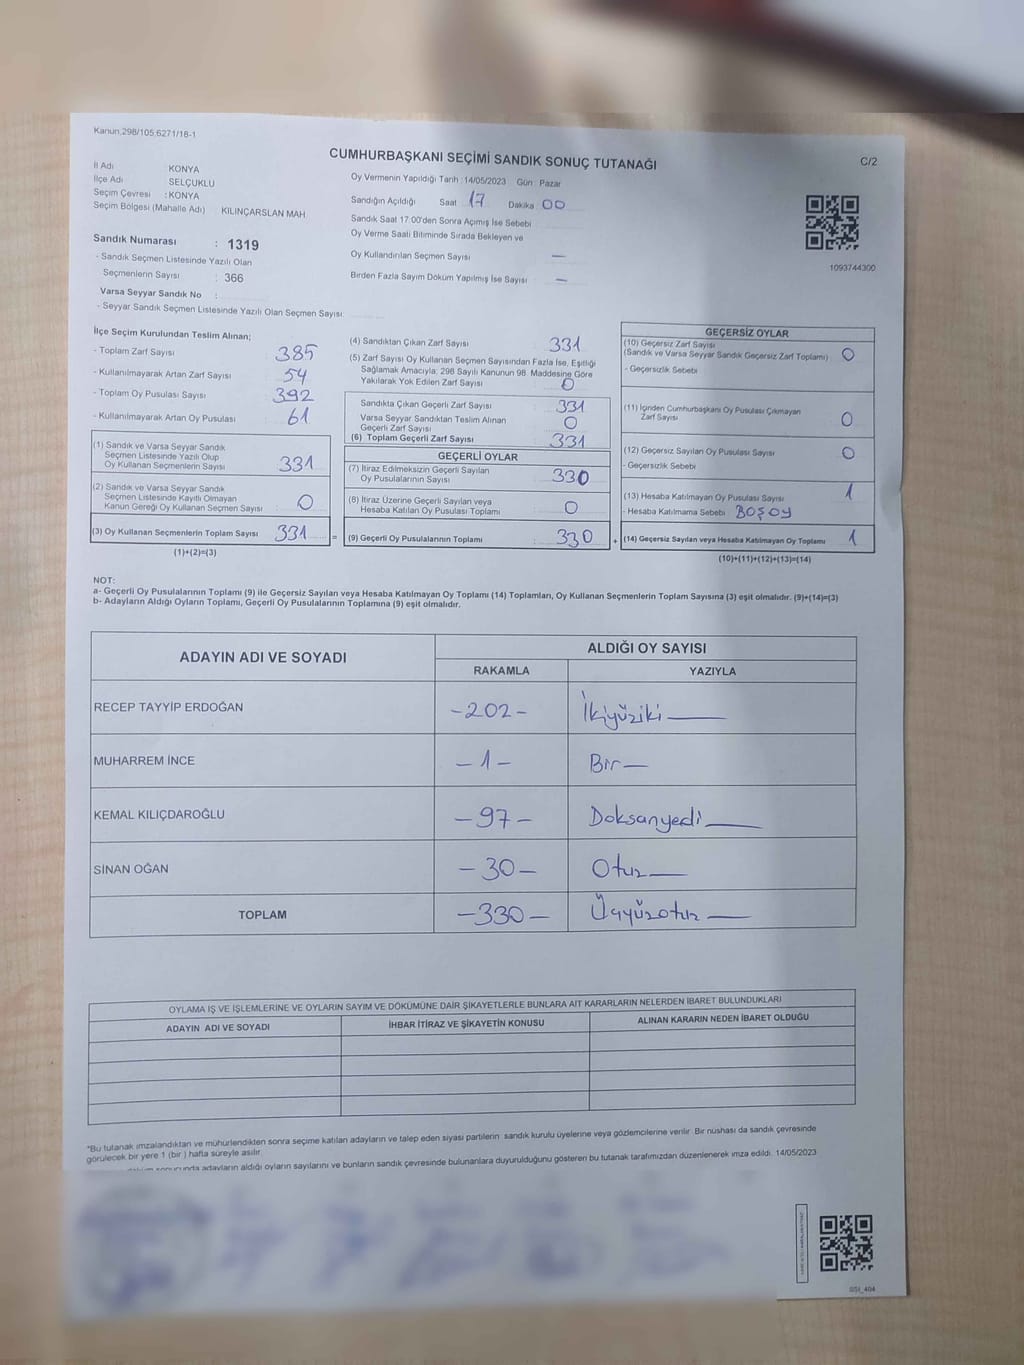 Kanun.298/105;6271/18-1
CUMHURBAŞKANI SEÇİMİ SANDIK SONUÇ TUTANAĞI
C/2
İl Adı KONYA
İlçe Adı SELÇUKLU
Seçim Çevresi : KONYA
Seçim Bölgesi (Mahalle Adı) : KILINÇARSLAN MAH.
Sandık Numarası : 1319
- Sandık Seçmen Listesinde Yazılı Olan
Seçmenlerin Sayısı : 366
Varsa Seyyar Sandık No :
- Seyyar Sandık Seçmen Listesinde Yazılı Olan Seçmen Sayısı:
Oy Vermenin Yapıldığı Tarih :14/05/2023 Gün : Pazar
Sandığın Açıldığı Saat 17 Dakika 00
Sandık Saat 17:00'den Sonra Açımış İse Sebebi
Oy Verme Saati Bitiminde Sırada Bekleyen ve
Oy Kullandırılan Seçmen Sayısı —
Birden Fazla Sayım Döküm Yapılmış İse Sayısı —
1093744300
İlçe Seçim Kurulundan Teslim Alınan;
- Toplam Zarf Sayısı 385
- Kullanılmayarak Artan Zarf Sayısı 54
- Toplam Oy Pusulası Sayısı 392
- Kullanılmayarak Artan Oy Pusulası 61
(1) Sandık ve Varsa Seyyar Sandık
Seçmen Listesinde Yazılı Olup
Oy Kullanan Seçmenlerin Sayısı 331
(2) Sandık ve Varsa Seyyar Sandık
Seçmen Listesinde Kayıtlı Olmayan
Kanun Gereği Oy Kullanan Seçmen Sayısı 0
(3) Oy Kullanan Seçmenlerin Toplam Sayısı 331 =
(1)+(2)=(3)
(4) Sandıktan Çıkan Zarf Sayısı 331
(5) Zarf Sayısı Oy Kullanan Seçmen Sayısından Fazla İse, Eşitliği
Sağlamak Amacıyla; 298 Sayılı Kanunun 98. Maddesine Göre
Yakılarak Yok Edilen Zarf Sayısı 0
Sandıkta Çıkan Geçerli Zarf Sayısı 331
Varsa Seyyar Sandıktan Teslim Alınan
Geçerli Zarf Sayısı 0
(6) Toplam Geçerli Zarf Sayısı 331
GEÇERLİ OYLAR
(7) İtiraz Edilmeksizin Geçerli Sayılan
Oy Pusulalarının Sayısı 330
(8) İtiraz Üzerine Geçerli Sayılan veya
Hesaba Katılan Oy Pusulası Toplamı 0
(9) Geçerli Oy Pusulalarının Toplamı : 330 +
GEÇERSİZ OYLAR
(10) Geçersiz Zarf Sayısı
(Sandık ve Varsa Seyyar Sandık Geçersiz Zarf Toplamı) 0
- Geçersizlik Sebebi
(11) İçinden Cumhurbaşkanı Oy Pusulası Çıkmayan
Zarf Sayısı 0
(12) Geçersiz Sayılan Oy Pusulası Sayısı 0
- Geçersizlik Sebebi
(13) Hesaba Katılmayan Oy Pusulası Sayısı 1
- Hesaba Katılmama Sebebi BOŞOY
(14) Geçersiz Sayılan veya Hesaba Katılmayan Oy Toplamı 1
(10)+(11)+(12)+(13)=(14)
NOT:
a- Geçerli Oy Pusulalarının Toplamı (9) ile Geçersiz Sayılan veya Hesaba Katılmayan Oy Toplamı (14) Toplamları, Oy Kullanan Seçmenlerin Toplam Sayısına (3) eşit olmalıdır. (9)+(14)=(3)
b- Adayların Aldığı Oyların Toplamı, Geçerli Oy Pusulalarının Toplamına (9) eşit olmalıdır.
ADAYIN ADI VE SOYADI
ALDIĞI OY SAYISI
RAKAMLA YAZIYLA
RECEP TAYYİP ERDOĞAN -202- İkiyüziki —
MUHARREM İNCE -1- Bir —
KEMAL KILIÇDAROĞLU -97- Doksanyedi —
SİNAN OĞAN -30- Otuz —
TOPLAM -330- Üçyüzotuz —
OYLAMA İŞ VE İŞLEMLERİNE VE OYLARIN SAYIM VE DÖKÜMÜNE DAİR ŞİKAYETLERLE BUNLARA AİT KARARLARIN NELERDEN İBARET BULUNDUKLARI
ADAYIN ADI VE SOYADI İHBAR İTİRAZ VE ŞİKAYETİN KONUSU ALINAN KARARIN NEDEN İBARET OLDUĞU
*Bu tutanak imzalandıktan ve mühürlendikten sonra seçime katılan adayların ve talep eden siyasi partilerin sandık kurulu üyelerine veya gözlemcilerine verilir. Bir nüshası da sandık çevresinde
görülecek bir yere 1 (bir ) hafta süreyle asılır.
sonucunda adayların aldığı oyların sayılarını ve bunların sandık çevresinde bulunanlara duyurulduğunu gösteren bu tutanak tarafımızdan düzenlenerek imza edildi. 14/05/2023